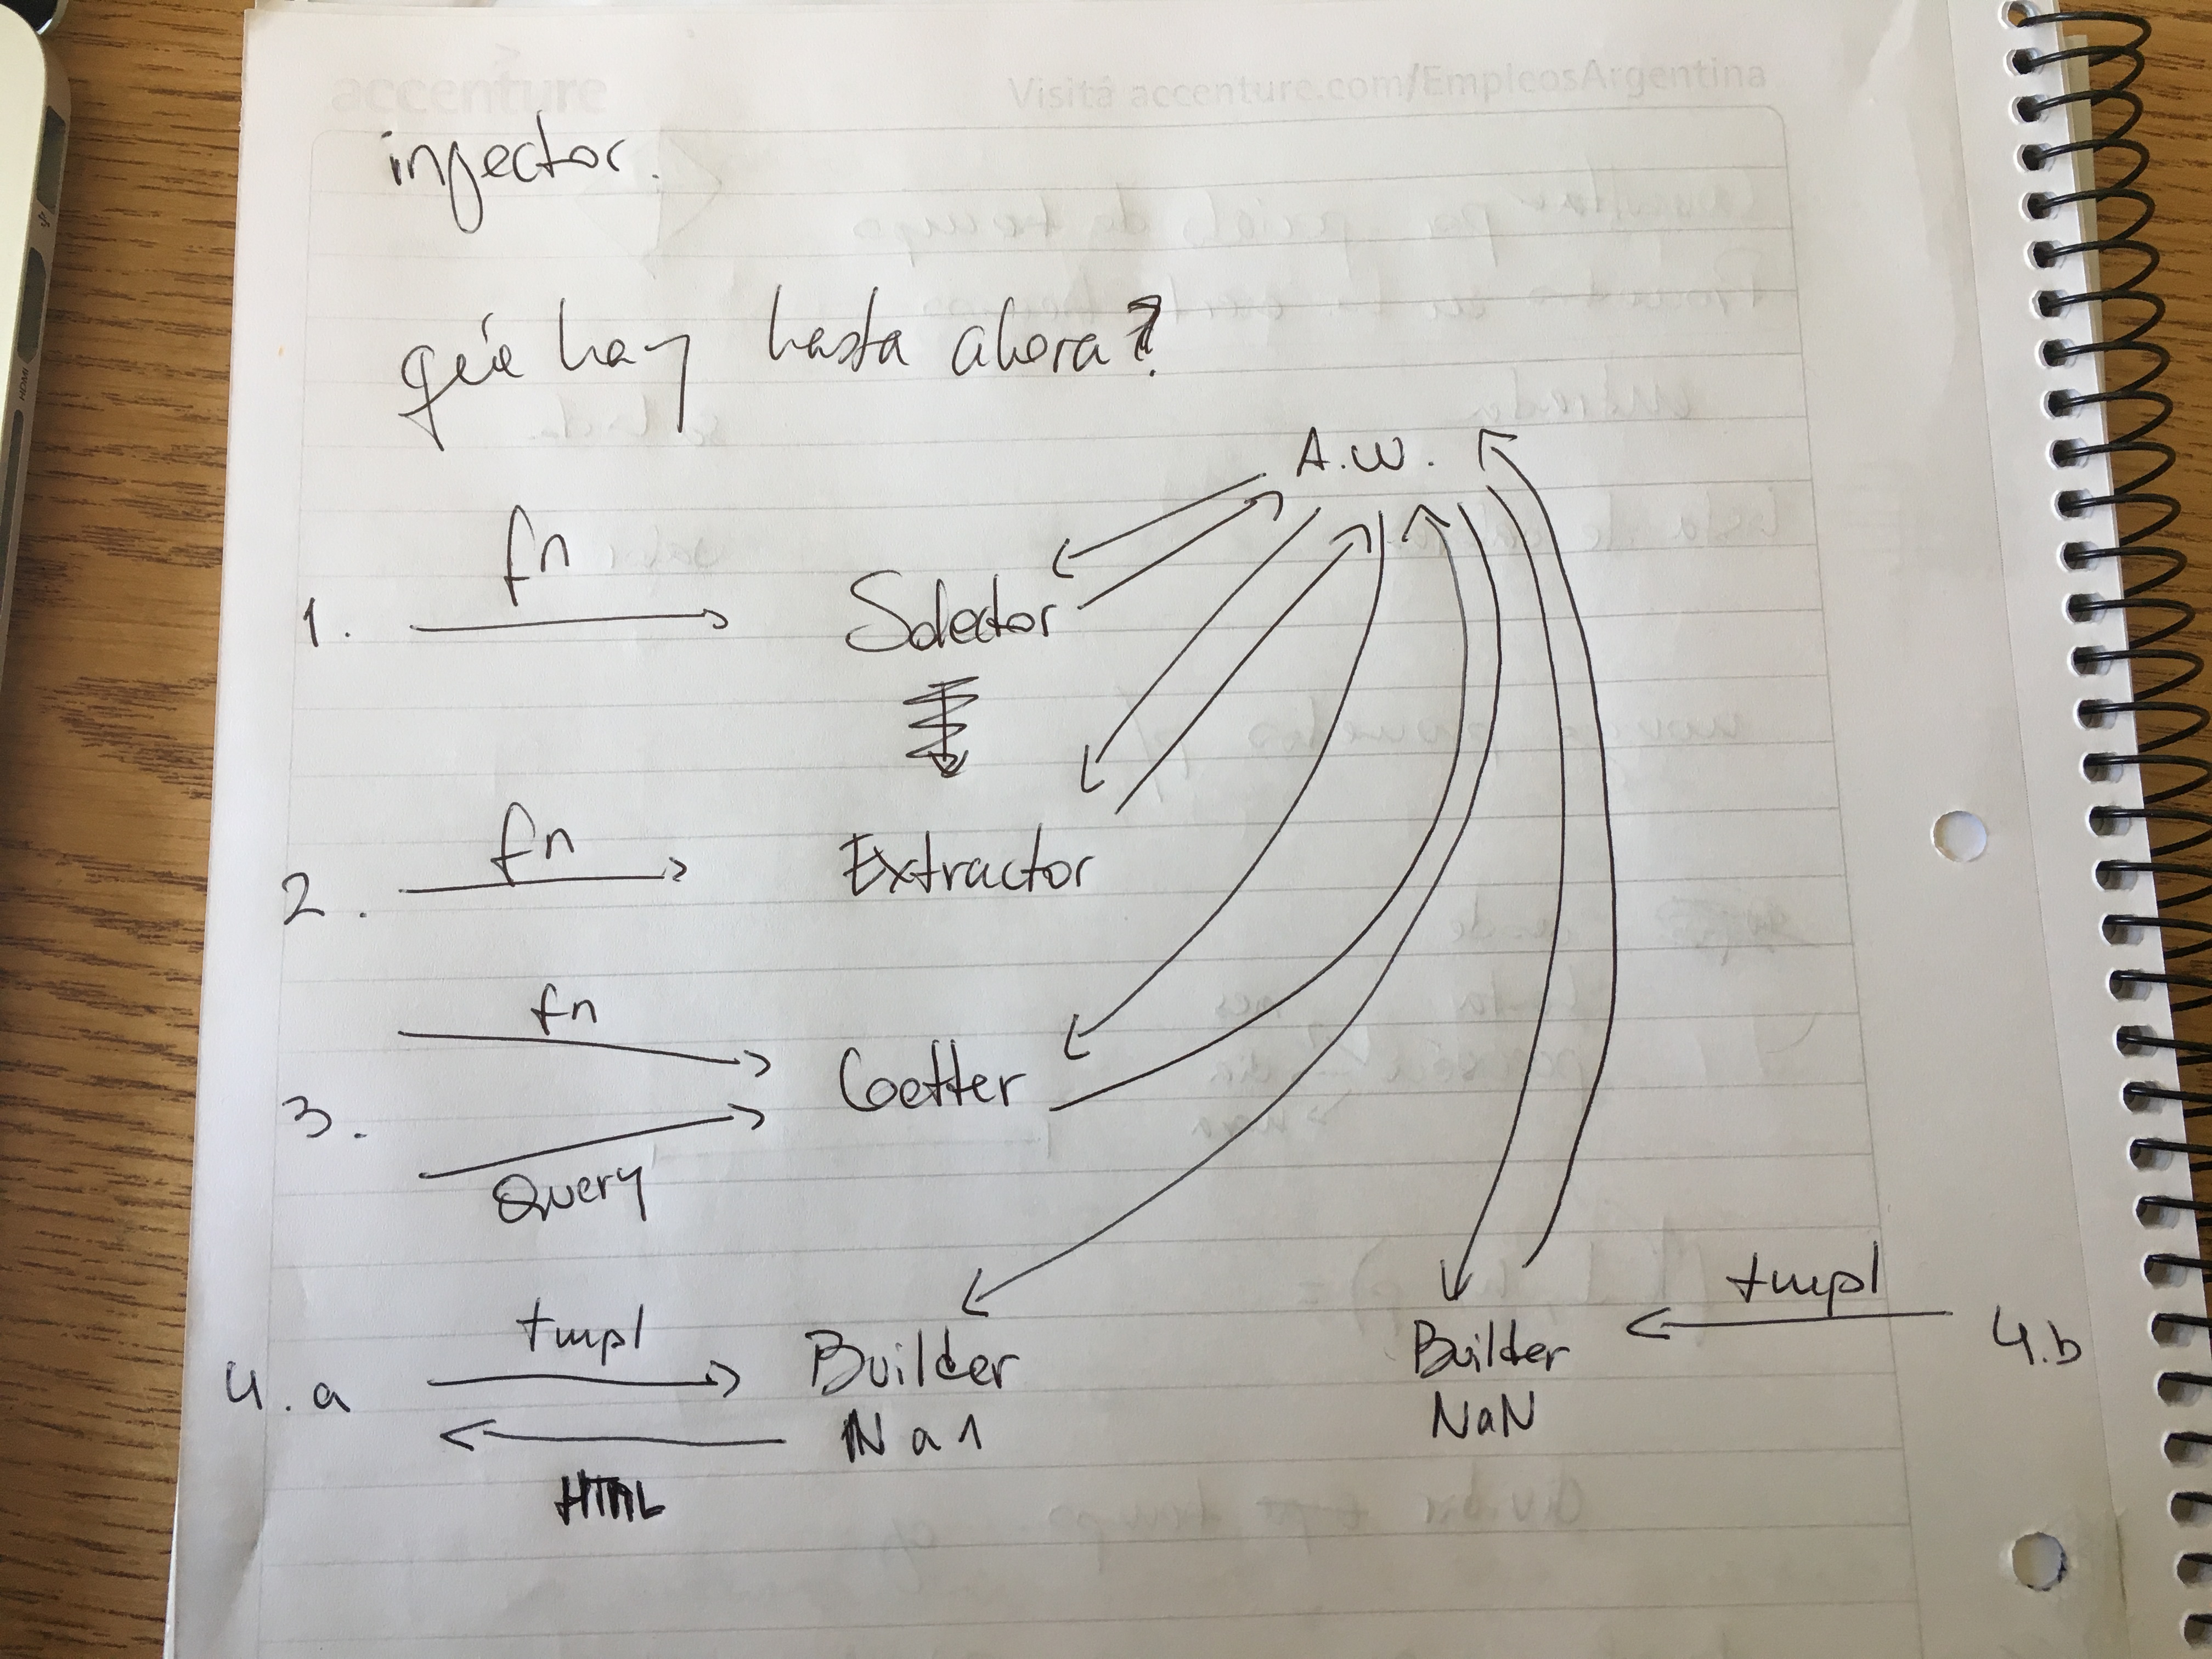 accenture
Visitá accenture.com/EmpleosArgentina
injector.
qué hay hasta ahora?
A.W.
1.
fn
Selector
2.
fn
Extractor
3.
fn
Getter
Query
4.a
tmpl
Builder
Na1
HTML
Builder
NaN
tmpl
4.b
HDMI